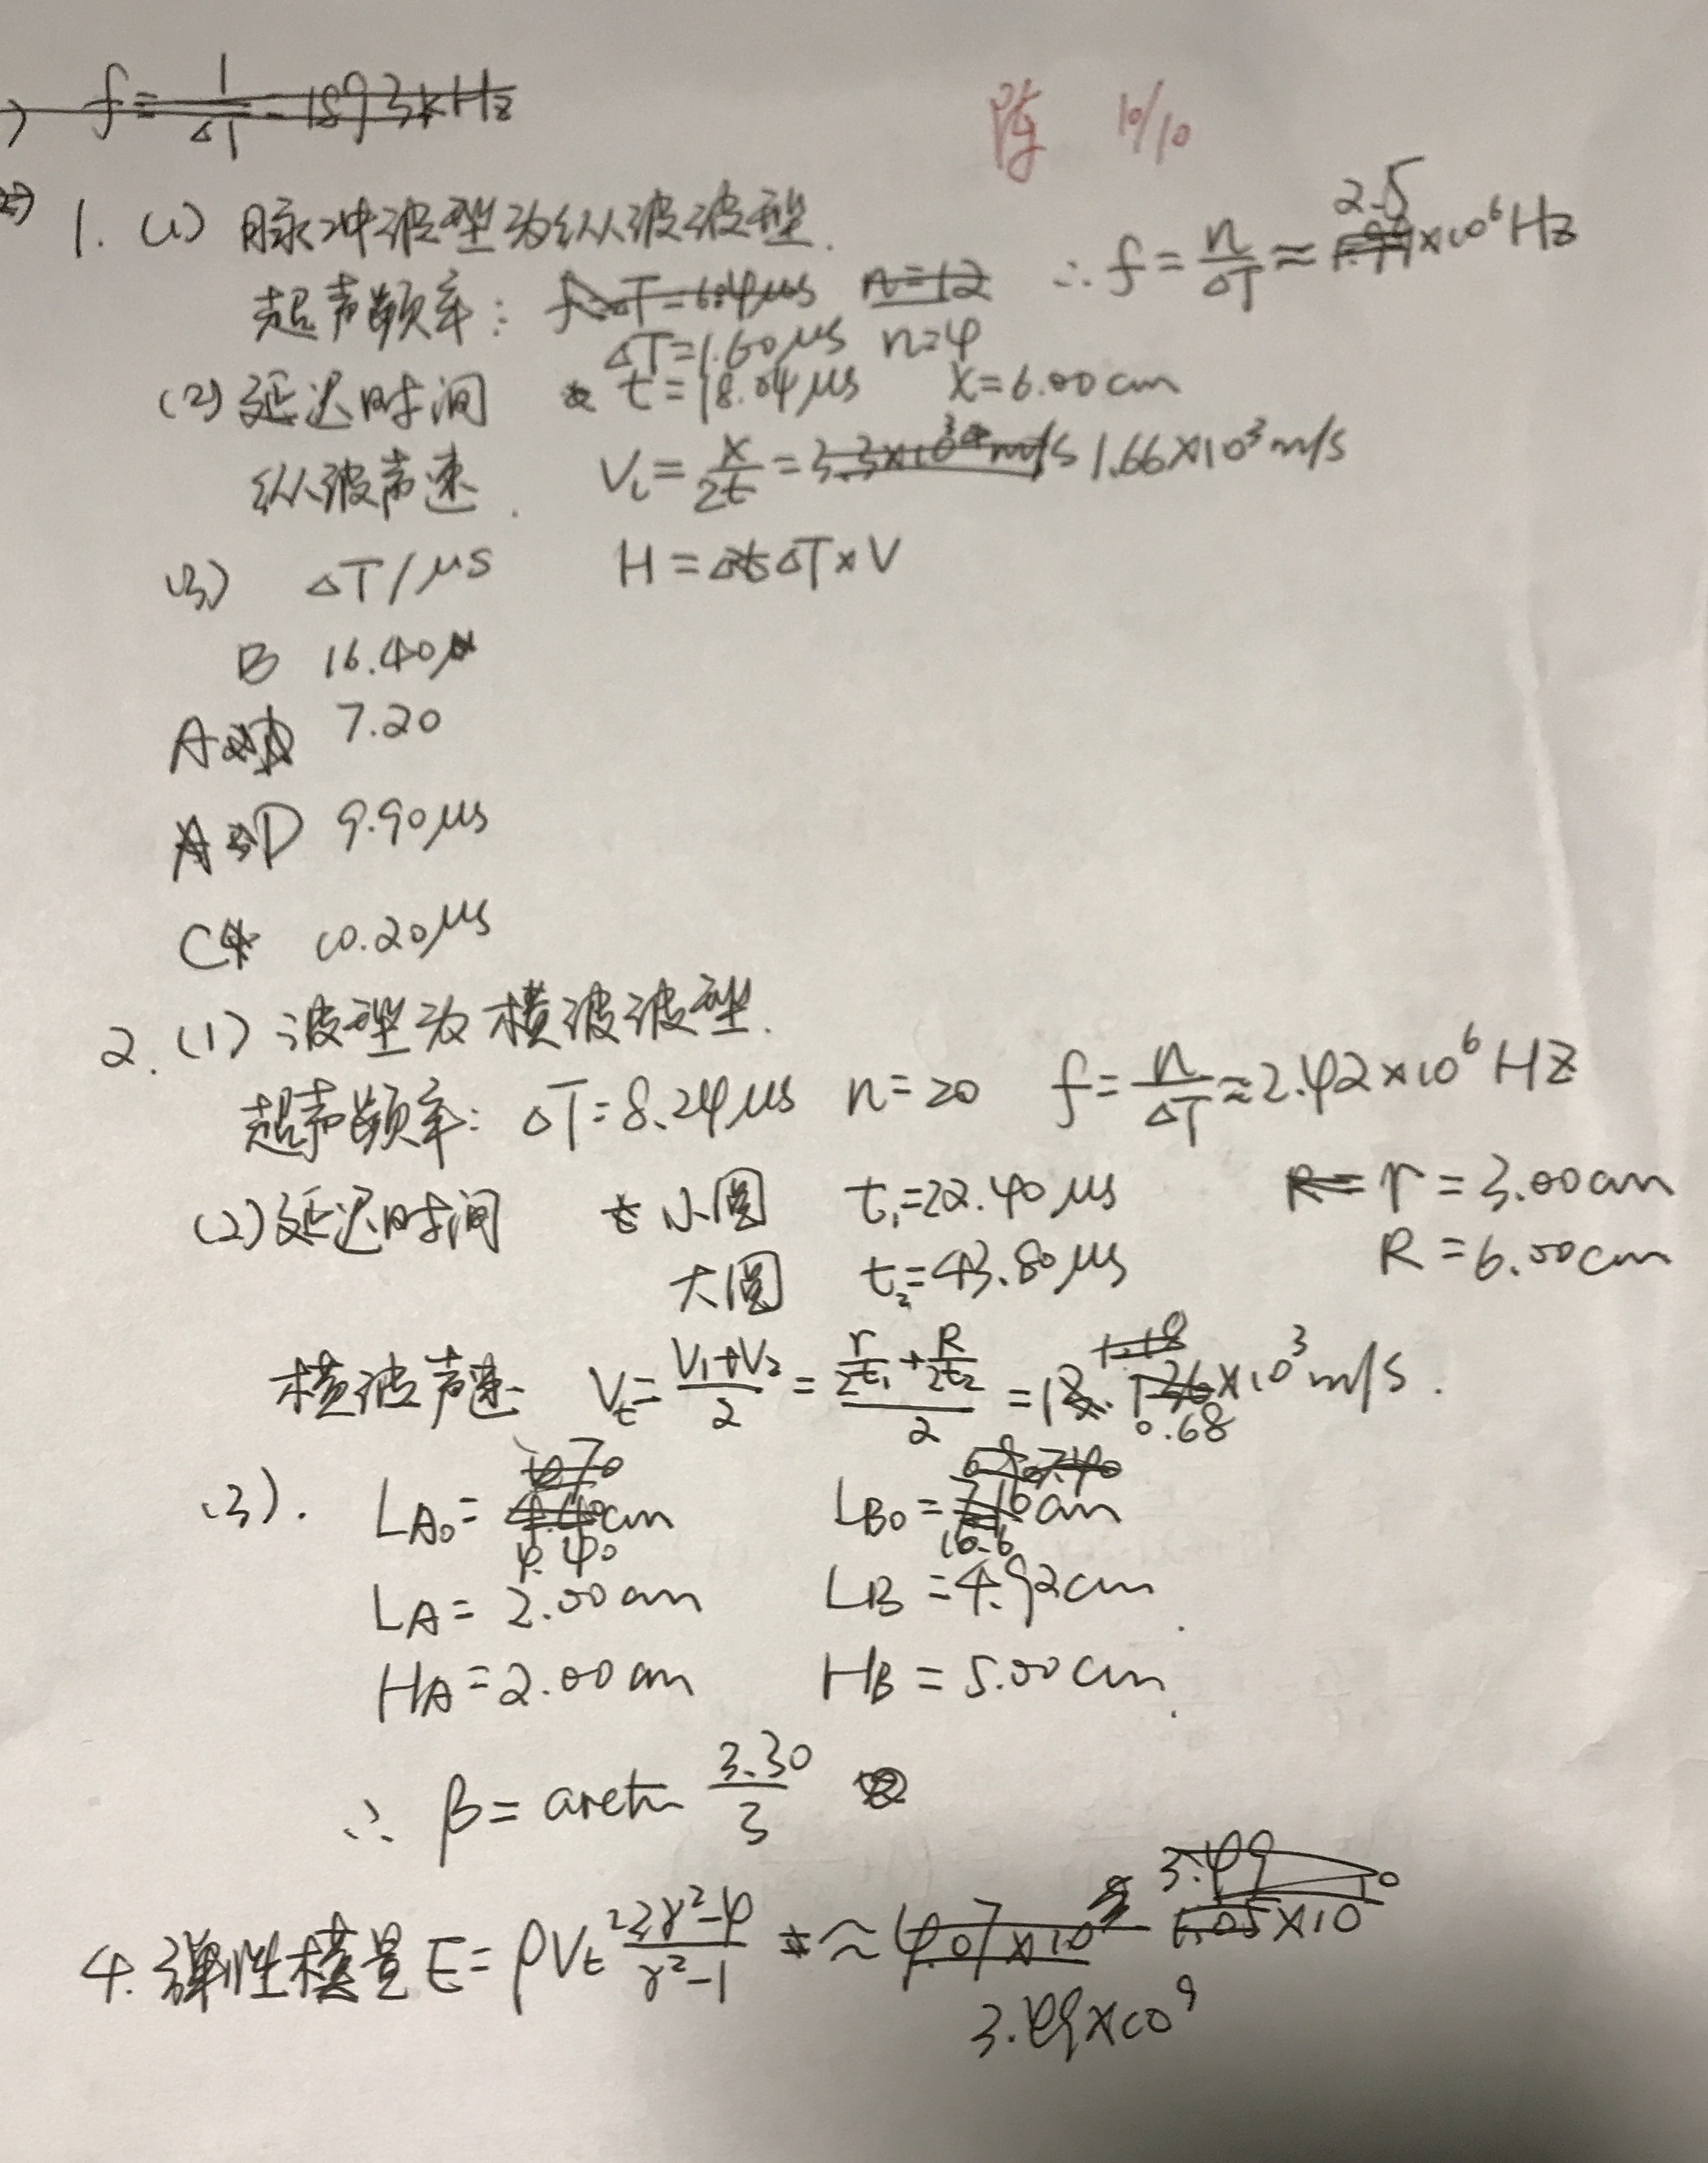 f=1/ΔT=1893kHz
10/10
1. (1) 脉冲波型为纵波波型.
超声频率: ΔT=6.4μs n=12 ∴ f=n/ΔT≈2.5×10⁶Hz
ΔT=1.60μs n=4
(2) 延迟时间 t=18.04μs X=6.00cm
纵波声速. V_L=X/2t=3.3×10³m/s 1.66×10³m/s
(3) ΔT/μs H=ΔT×V
B 16.40
A 7.20
D 9.90μs
C 10.20μs
2. (1) 波型为横波波型.
超声频率: ΔT=8.24μs n=20 f=n/ΔT≈2.42×10⁶HZ
(2) 延迟时间 小圆 t₁=22.40μs r=3.00cm
大圆 t₂=43.80μs R=6.00cm
横波声速 V_t=(V₁+V₂)/2=(r/2t₁+R/2t₂)/2= 0.68×10³m/s.
(3). L_A0=4.40cm L_B0=16.6cm
L_A=2.00cm L_B=4.92cm
H_A=2.00cm H_B=5.00cm
∴ β=arctan 3.30/3
4. 弹性模量E=ρV_t² (3γ²-4)/(γ²-1) ≈
3.49×10⁹